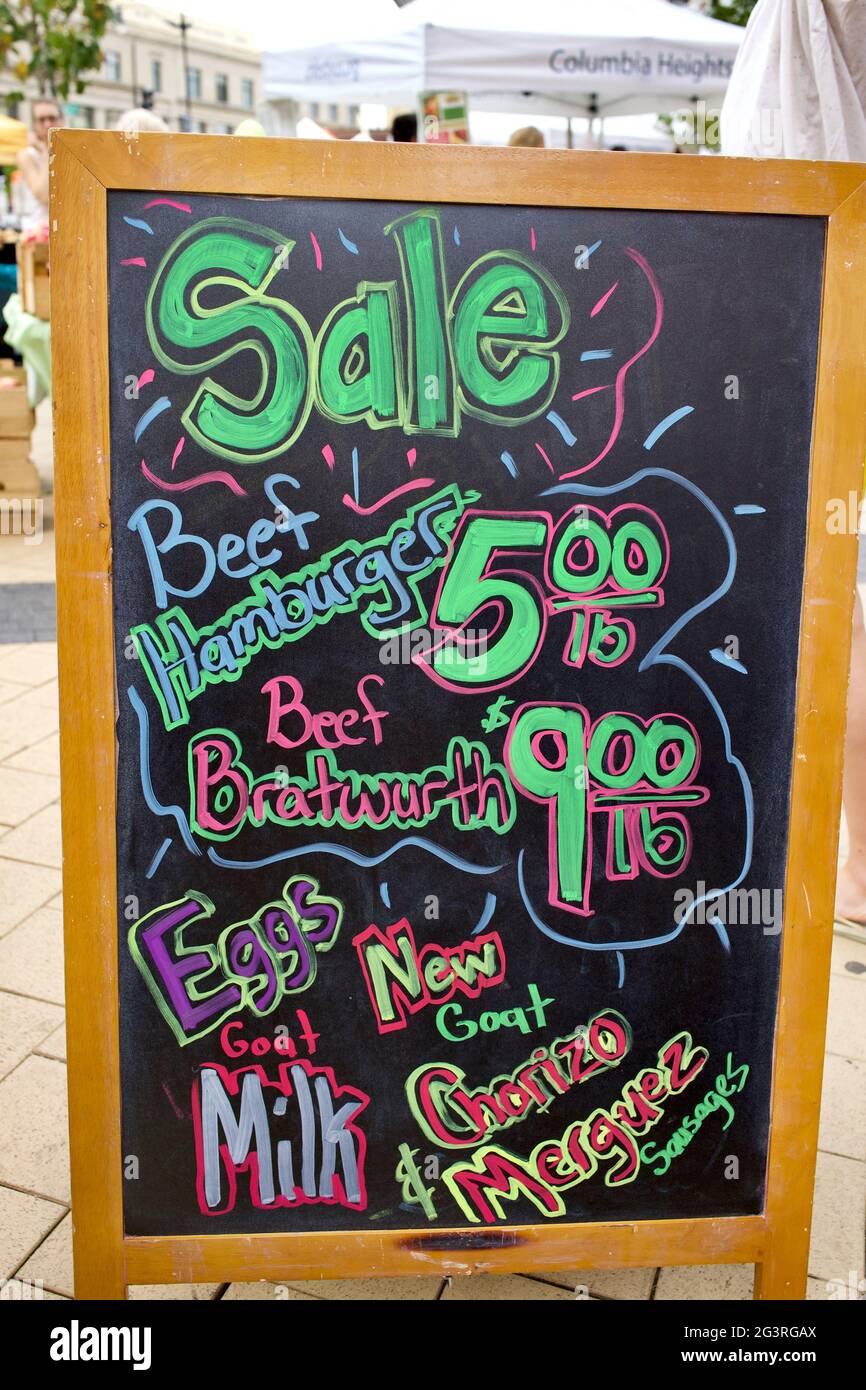 Columbia Heights
Sale
Beef
Hamburger 5.00
lb
Beef $
Bratwurth 9.00
lb
Eggs New
Goat Goat
Milk Chorizo
& Merguez
Sausages
alamy
Image ID: 2G3RGAX
www.alamy.com